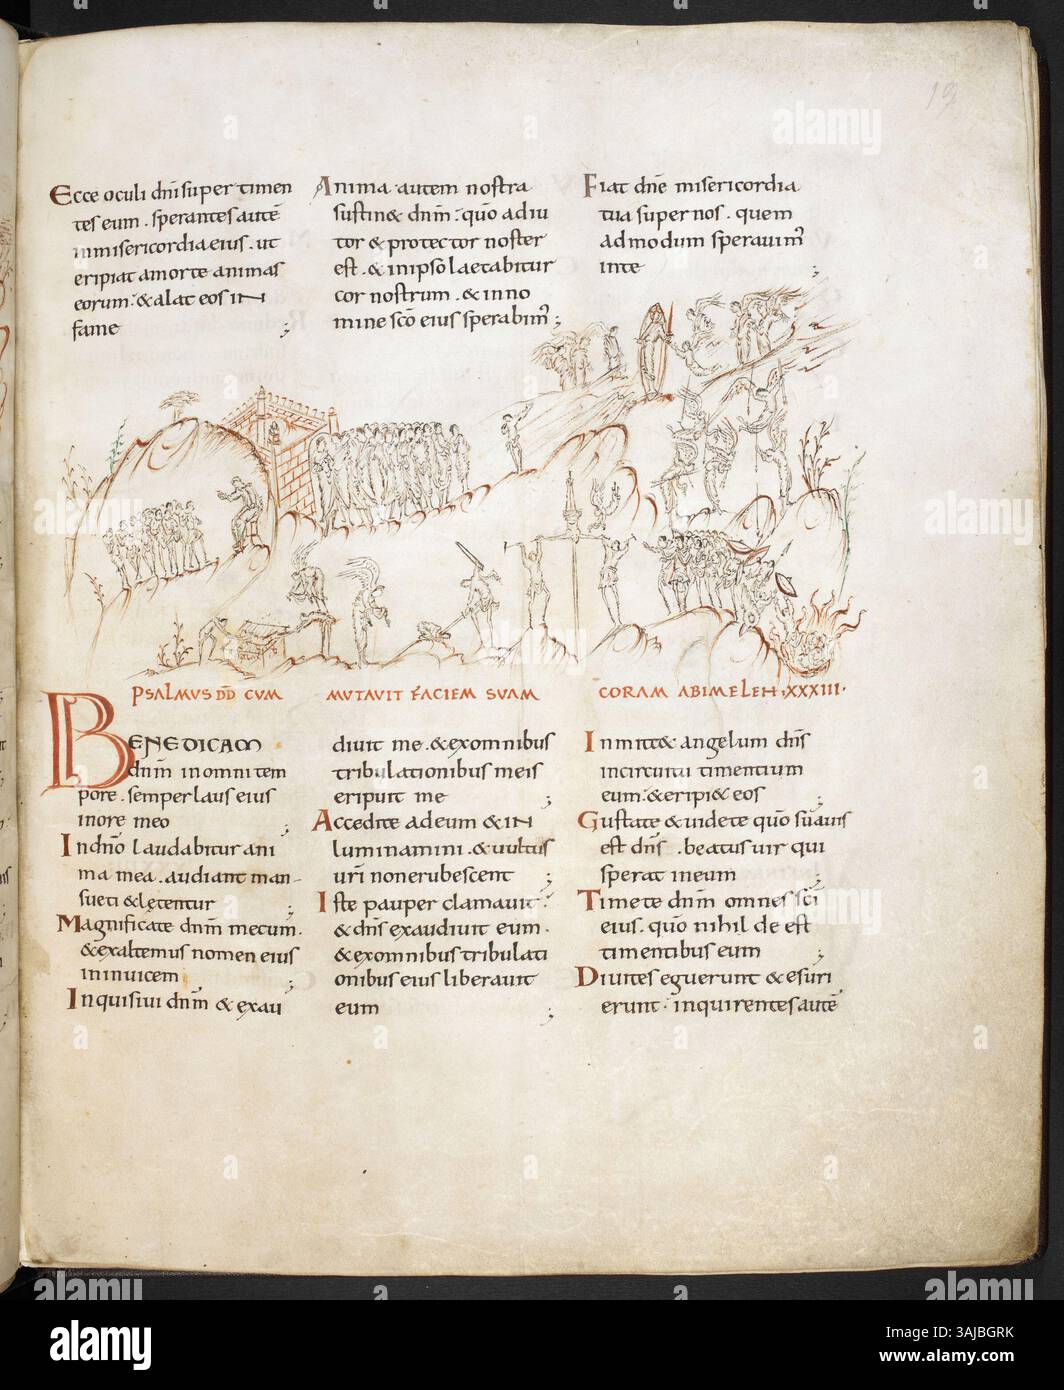 19
Ecce oculi dn̄i super timen
tes eum. sperantes autē
in misericordia eius. ut
eripiat a morte animas
eorum: & alat eos IN
fame ;
Anima autem nostra
sustin& dnm̄: quō adiu
tor & protector noster
est. & in ipso laetabitur
cor nostrum. & in no
mine scō eius sperabim; ;
Fiat dn̄e misericordia
tua super nos. quem
admodum speravim;
in te ;
PSALMUS DD CUM MUTAVIT FACIEM SUAM CORAM ABIMELEH. XXXIII.
BENEDICAM
dnm̄ in omni tem
pore. semper laus eius
in ore meo ;
In dn̄o laudabitur ani
ma mea. audiant man-
sueti & lętentur ;
Magnificate dnm̄ mecum.
& exaltemus nomen eius
in invicem ;
Inquisivi dnm̄ & exau
divit me. & ex omnibus
tribulationibus meis
eripuit me ;
Accedite ad eum & IN
luminamini. & vultus
vr̄i non erubescent ;
Iste pauper clamavit:
& dn̄s exaudivit eum.
& ex omnibus tribulati
onibus eius liberavit
eum ;
Inmitt& angelum dn̄s
in circuitu timentium
eum: & eripi& eos ;
Gustate & videte quō suavis
est dn̄s. beatus vir qui
sperat in eum ;
Timete dnm̄ omnes scī
eius. quō nihil de est
timentibus eum ;
Divites eguerunt & esuri
erunt. inquirentes autē
alamy
Image ID: 3AJBGRK
www.alamy.com